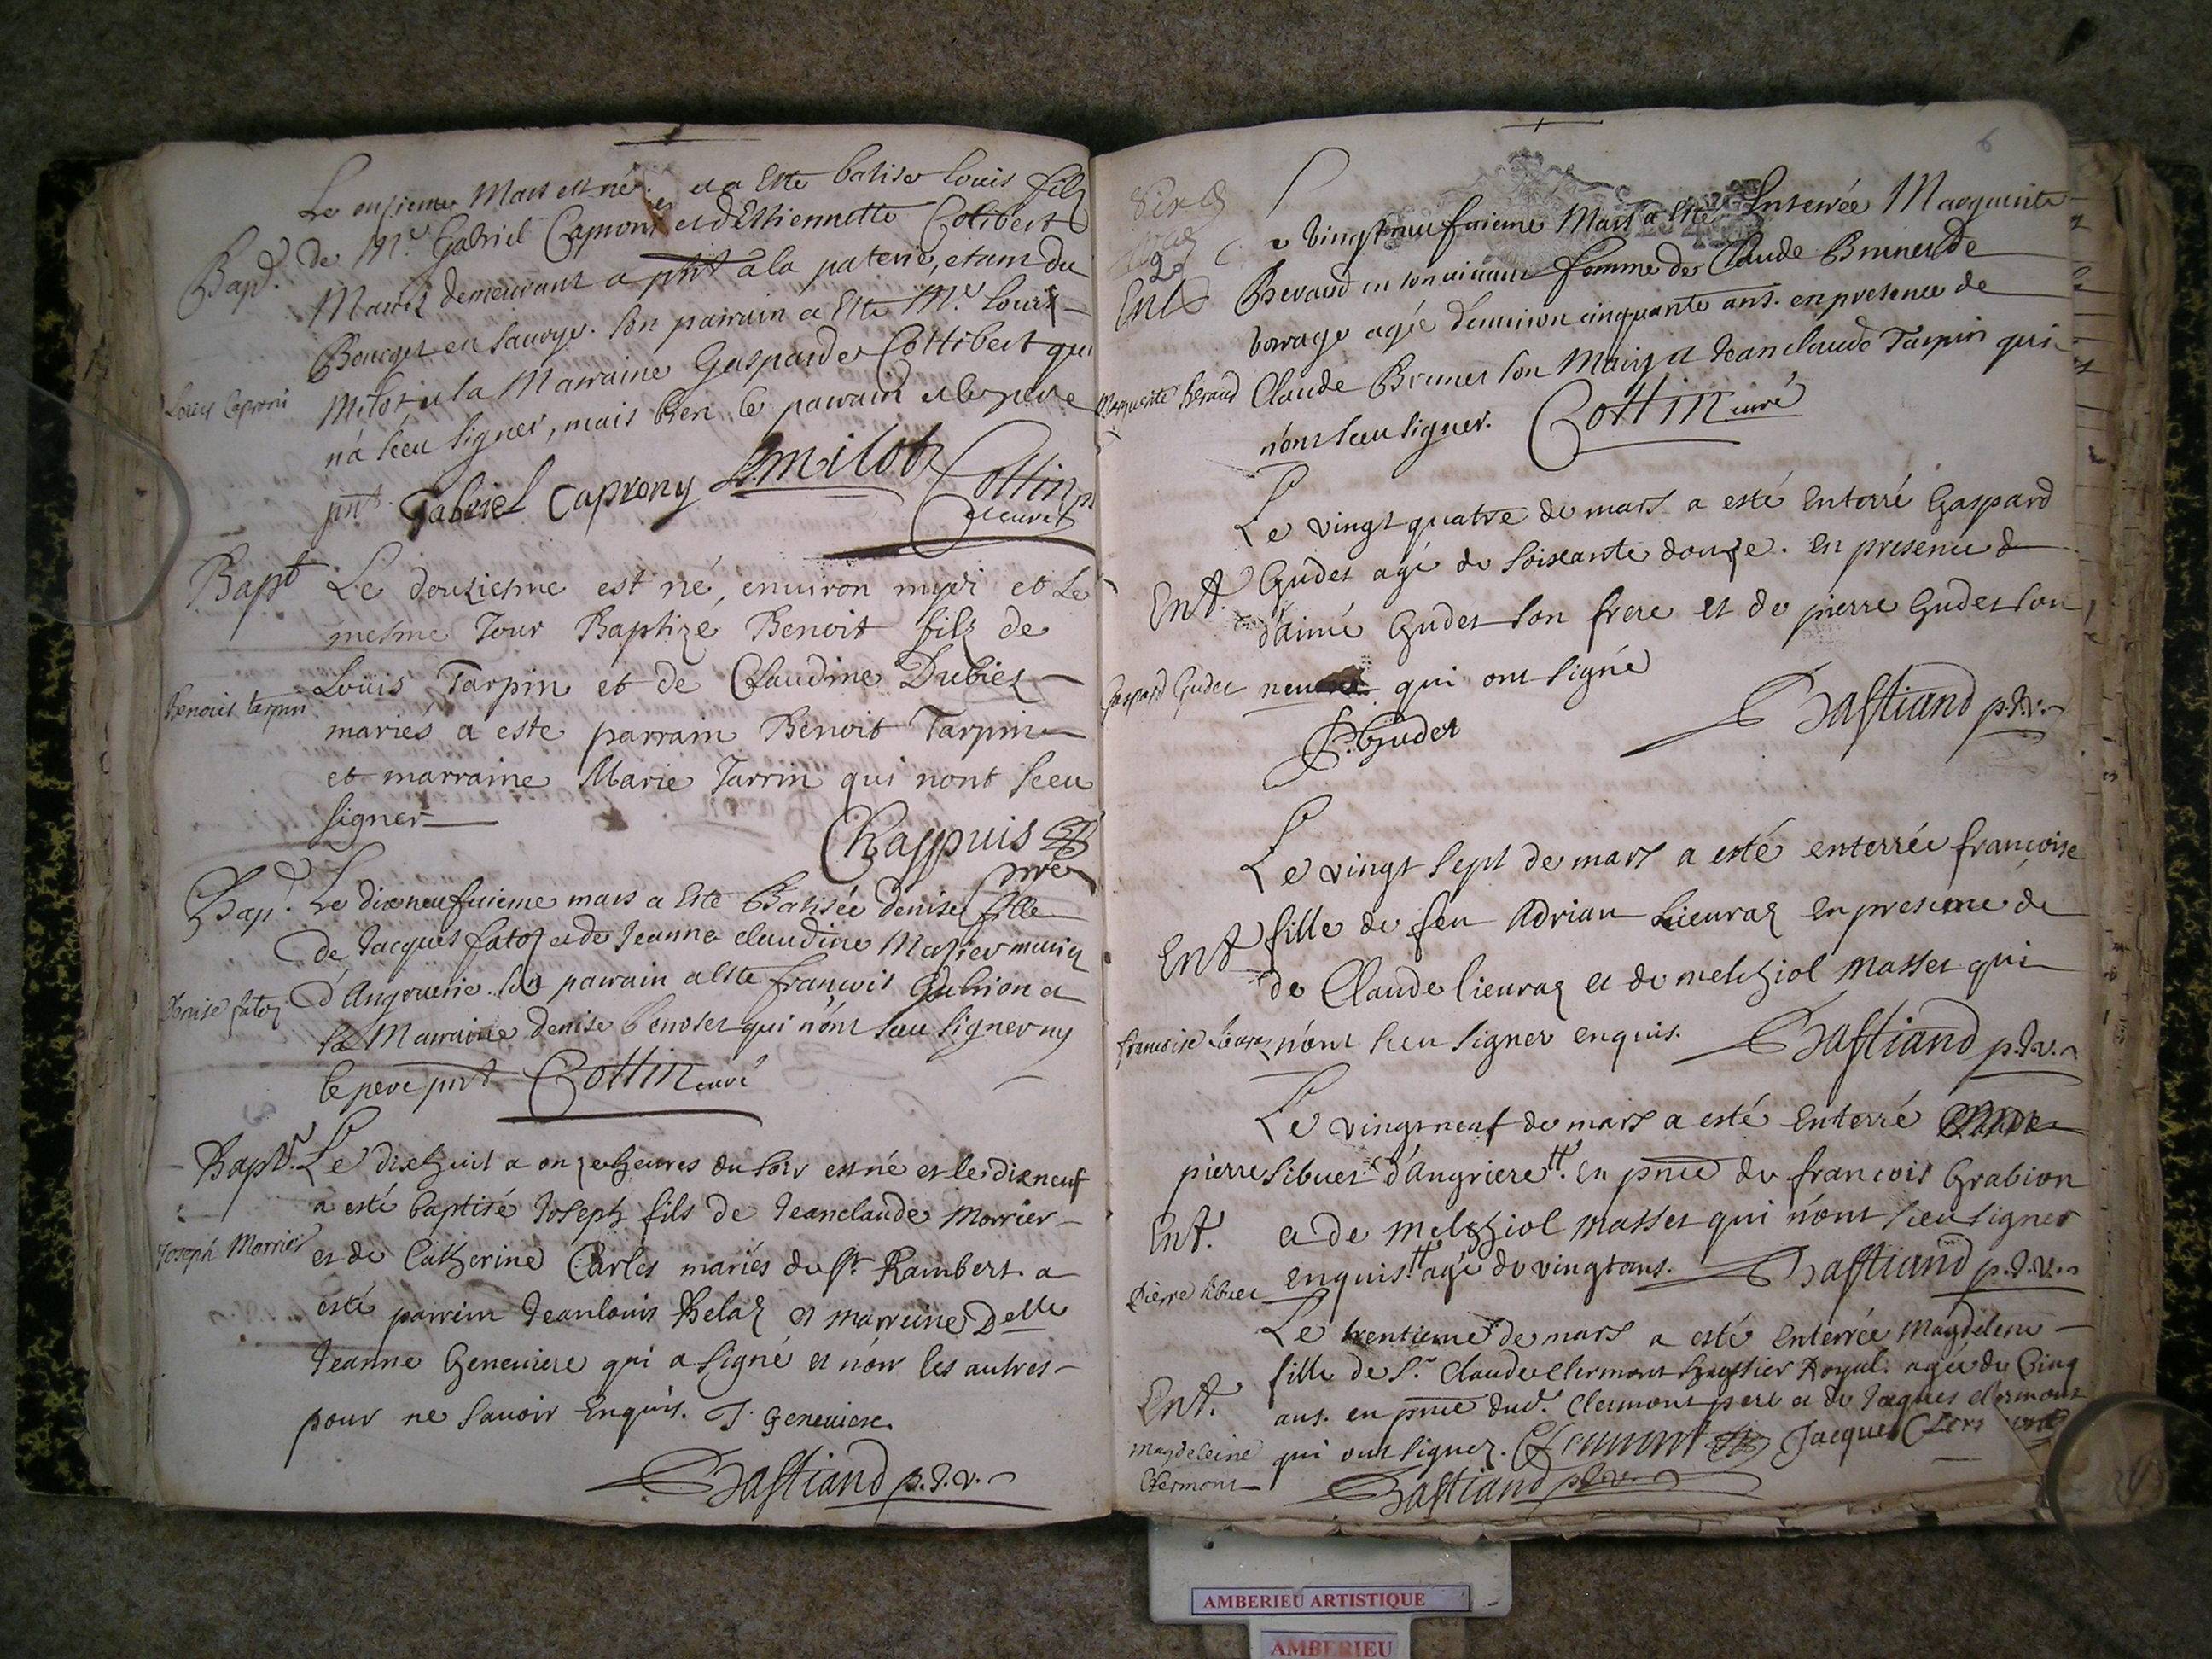 Le onsieme Mars est né et a Esté batisé Louis fils
Bapt. de Mr. Gabriel Caproni et d'Estiennette Cotibert
Mariez demeurant a pnt a la paterie, etant du
Bourget en Savoye. Son parrain a Esté Mr. Louis
Louis Caproni
Milot et la Marraine Gasparde Cottibert qui
n'a sceu signer, mais bien le parrain et le pere
pnt. Gabriel Caprony L. milot Cottin
curé
Bapt Le douziesme est né, environ midi et Le
mesme Jour Baptizé Benoit fils de
Louis Tarpin et de Claudine Dubiez
Benoist tarpin
mariés a este parrain Benoit Tarpin
et marraine Marie Jarrin qui nont sceu
signer
Chappuis
pvre
Bap. Le dixneufuieme mars a Esté Batisée denise fille
de Jacques fatoz et de Jeanne claudine Masier mariez
Denise fatoz
d'Angrierie. Son parrain a Esté françois Grabion et
la Marraine denise benoset qui n'ont sceu signer ny
le pere pnt Cottin curé
Bapt. Le dixhuit a onze heures du soir est né et le dixneuf
a esté baptisé Joseph fils de Jeanclaude Morrier
Joseph Morrier
et de Catherine Carles mariés de St Rambert a
esté parrein Jeanlouis Belaz et marreine Delle
Jeanne Geneviere qui a signé et non les autres
pour ne Savoir Enquis. J. Geneviere
Bastiand p.t.v.
6
Le vingtneufuieme Mars a Esté Enterrée Marguerite
Ent
Beraud en son vivant femme de Claude Brunet de
vorage agée d'environ cinquante ans. en presence de
Marguerite Beraud
Claude Brunet son Mary et Jeanclaude Tarpin qui
n'ont sceu signer. Cottin curé
Le vingt quatre de mars a esté Enterré Gaspard
Ent. Gudet agé de soixante douze. En presence de
d'aimé Gudet son frere et de pierre Gudet son
Gaspard Gudet
neveu qui ont signé
P. Gudet
Bastiand p.t.v.
Le vingt sept de mars a esté enterrée françoise
Ent fille de feu Adrian Lieuraz En presence de
de Claude lieuraz et de melchiol Masset qui
francoise Lieuraz
n'ont sceu signer enquis. Bastiand p.t.v.
Le vingt neuf de mars a esté Enterré
pierre Sibuet d'angriere. En pnce de francois Grabion
Ent. et de Melchiol Masset qui n'ont sceu signer
Pierre Sibuet
Enquis. agé de vingt ans. Bastiand p.t.v.
Le trentieme de mars a esté Enterrée Magdelene
fille de Sr. Claude Clermont huissier Royal. agée de Cinq
Ent. ans. en pnce dud. Clermont pere et de Jaques Clermont
Magdeleine
Clermont
qui ont signez. Clermont Jacques Clermont
Bastiand p.t.v.
AMBERIEU ARTISTIQUE
AMBERIEU